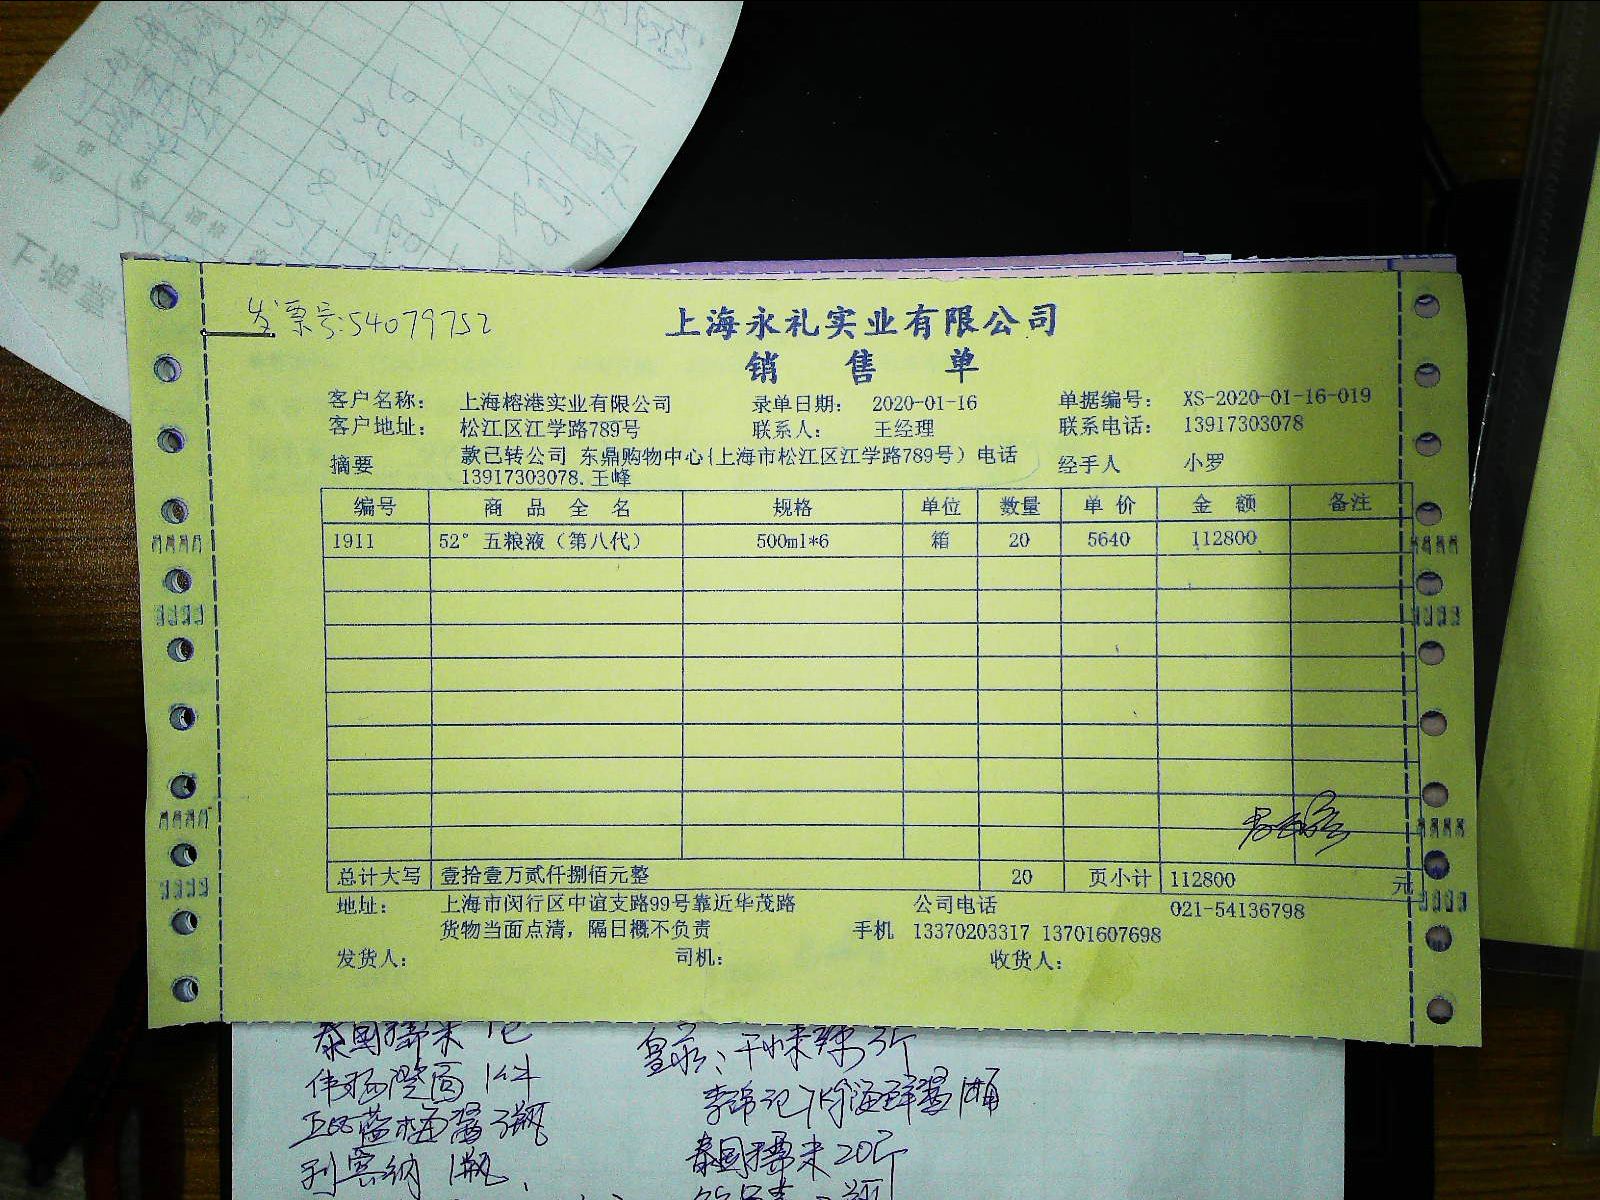 发票号:54079752
上海永礼实业有限公司
销 售 单
客户名称: 上海榕港实业有限公司 录单日期: 2020-01-16 单据编号: XS-2020-01-16-019
客户地址: 松江区江学路789号 联系人: 王经理 联系电话: 13917303078
摘要 款已转公司 东鼎购物中心(上海市松江区江学路789号) 电话 经手人 小罗
13917303078.王峰
编号 商 品 全 名 规格 单位 数量 单 价 金 额 备注
1911 52°五粮液(第八代) 500ml*6 箱 20 5640 112800
总计大写 壹拾壹万贰仟捌佰元整 20 页小计 112800 元
地址: 上海市闵行区中谊支路99号靠近华茂路 公司电话 021-54136798
货物当面点清,隔日概不负责 手机 13370203317 13701607698
发货人: 司机: 收货人:
泰国 米 1包
1件
蓝梅酱 3瓶
1瓶
李锦记 海鲜酱 1桶
泰国 米 20斤